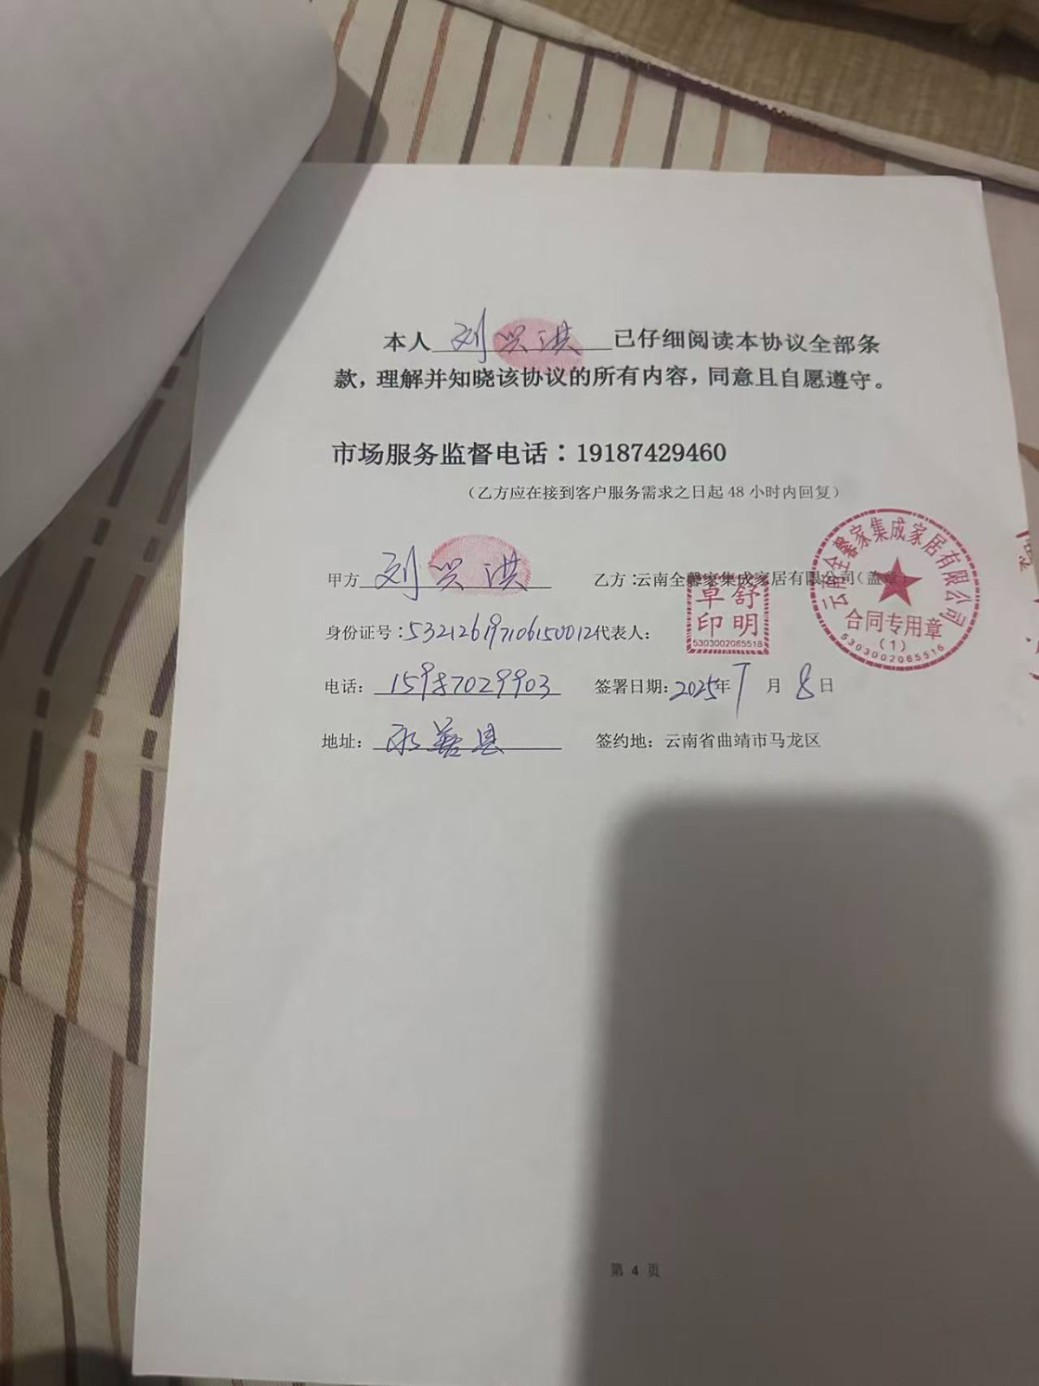 本人 刘兴洪 已仔细阅读本协议全部条
款，理解并知晓该协议的所有内容，同意且自愿遵守。
市场服务监督电话：19187429460
（乙方应在接到客户服务需求之日起 48 小时内回复）
甲方 刘兴洪 乙方：云南全馨家集成家居有限公司（盖章）
身份证号：532126197106150012 代表人：
章舒
印明
5303002065518
云南全馨家集成家居有限公司
合同专用章
（1）
5303002065516
电话：15987029903 签署日期：2025年7月8日
地址：永善县 签约地：云南省曲靖市马龙区
第 4 页